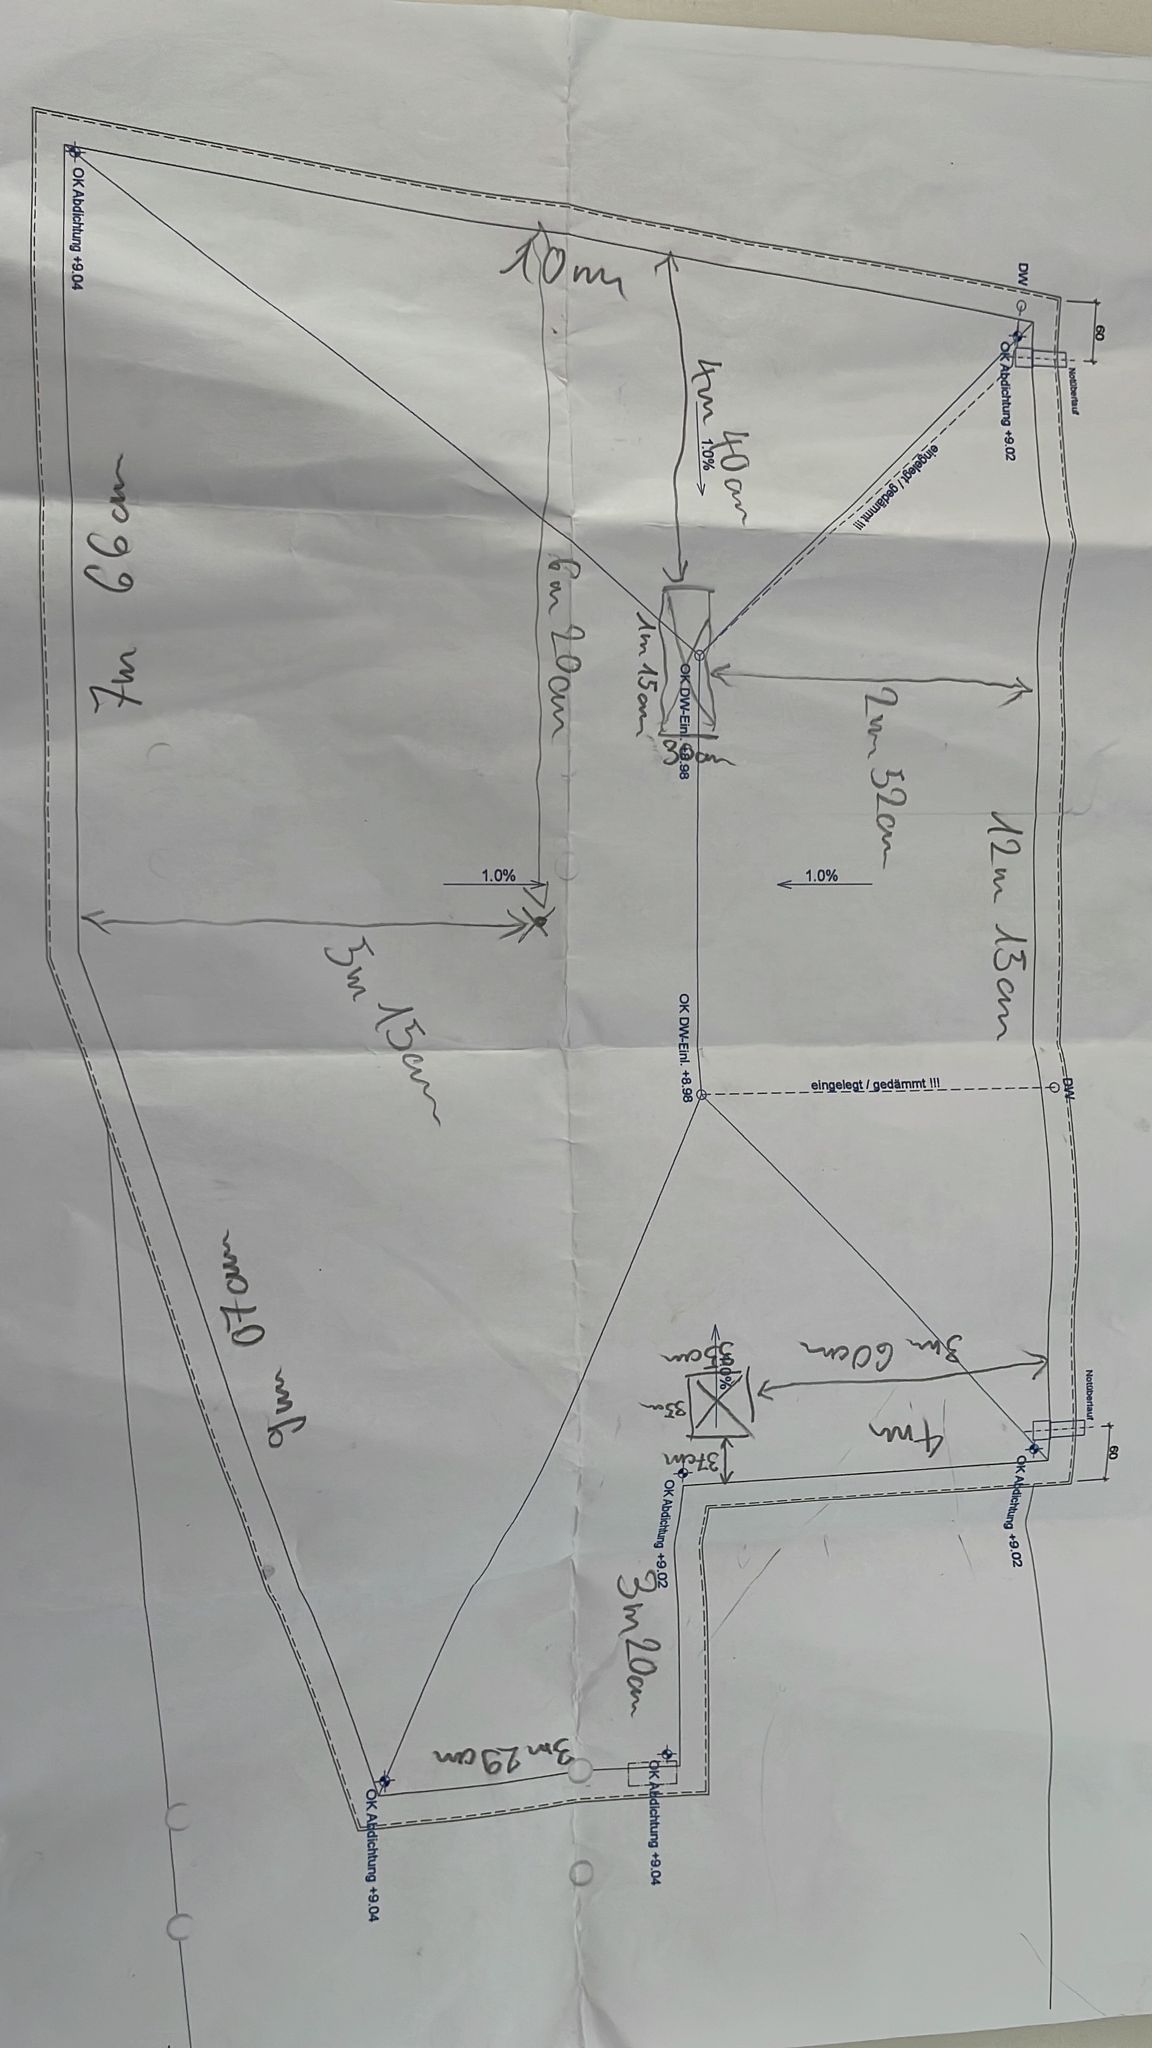 60
Notüberlauf
60
Notüberlauf
DW
DW
OK Abdichtung +9.02
OK Abdichtung +9.02
12m 15cm
eingelegt / gedämmt !!!
2m 52cm
1.0%
eingelegt / gedämmt !!!
3m 60cm
4m
4m 40cm
1.0%
OK DW-Einl. +8.98
30cm
1m 15cm
OK DW-Einl. +8.98
35cm
35cm
37cm
OK Abdichtung +9.02
3m 20cm
OK Abdichtung +9.04
10m
6m 20cm
1.0%
3m 29cm
5m 15cm
OK Abdichtung +9.04
9m 07cm
7m 66cm
OK Abdichtung +9.04